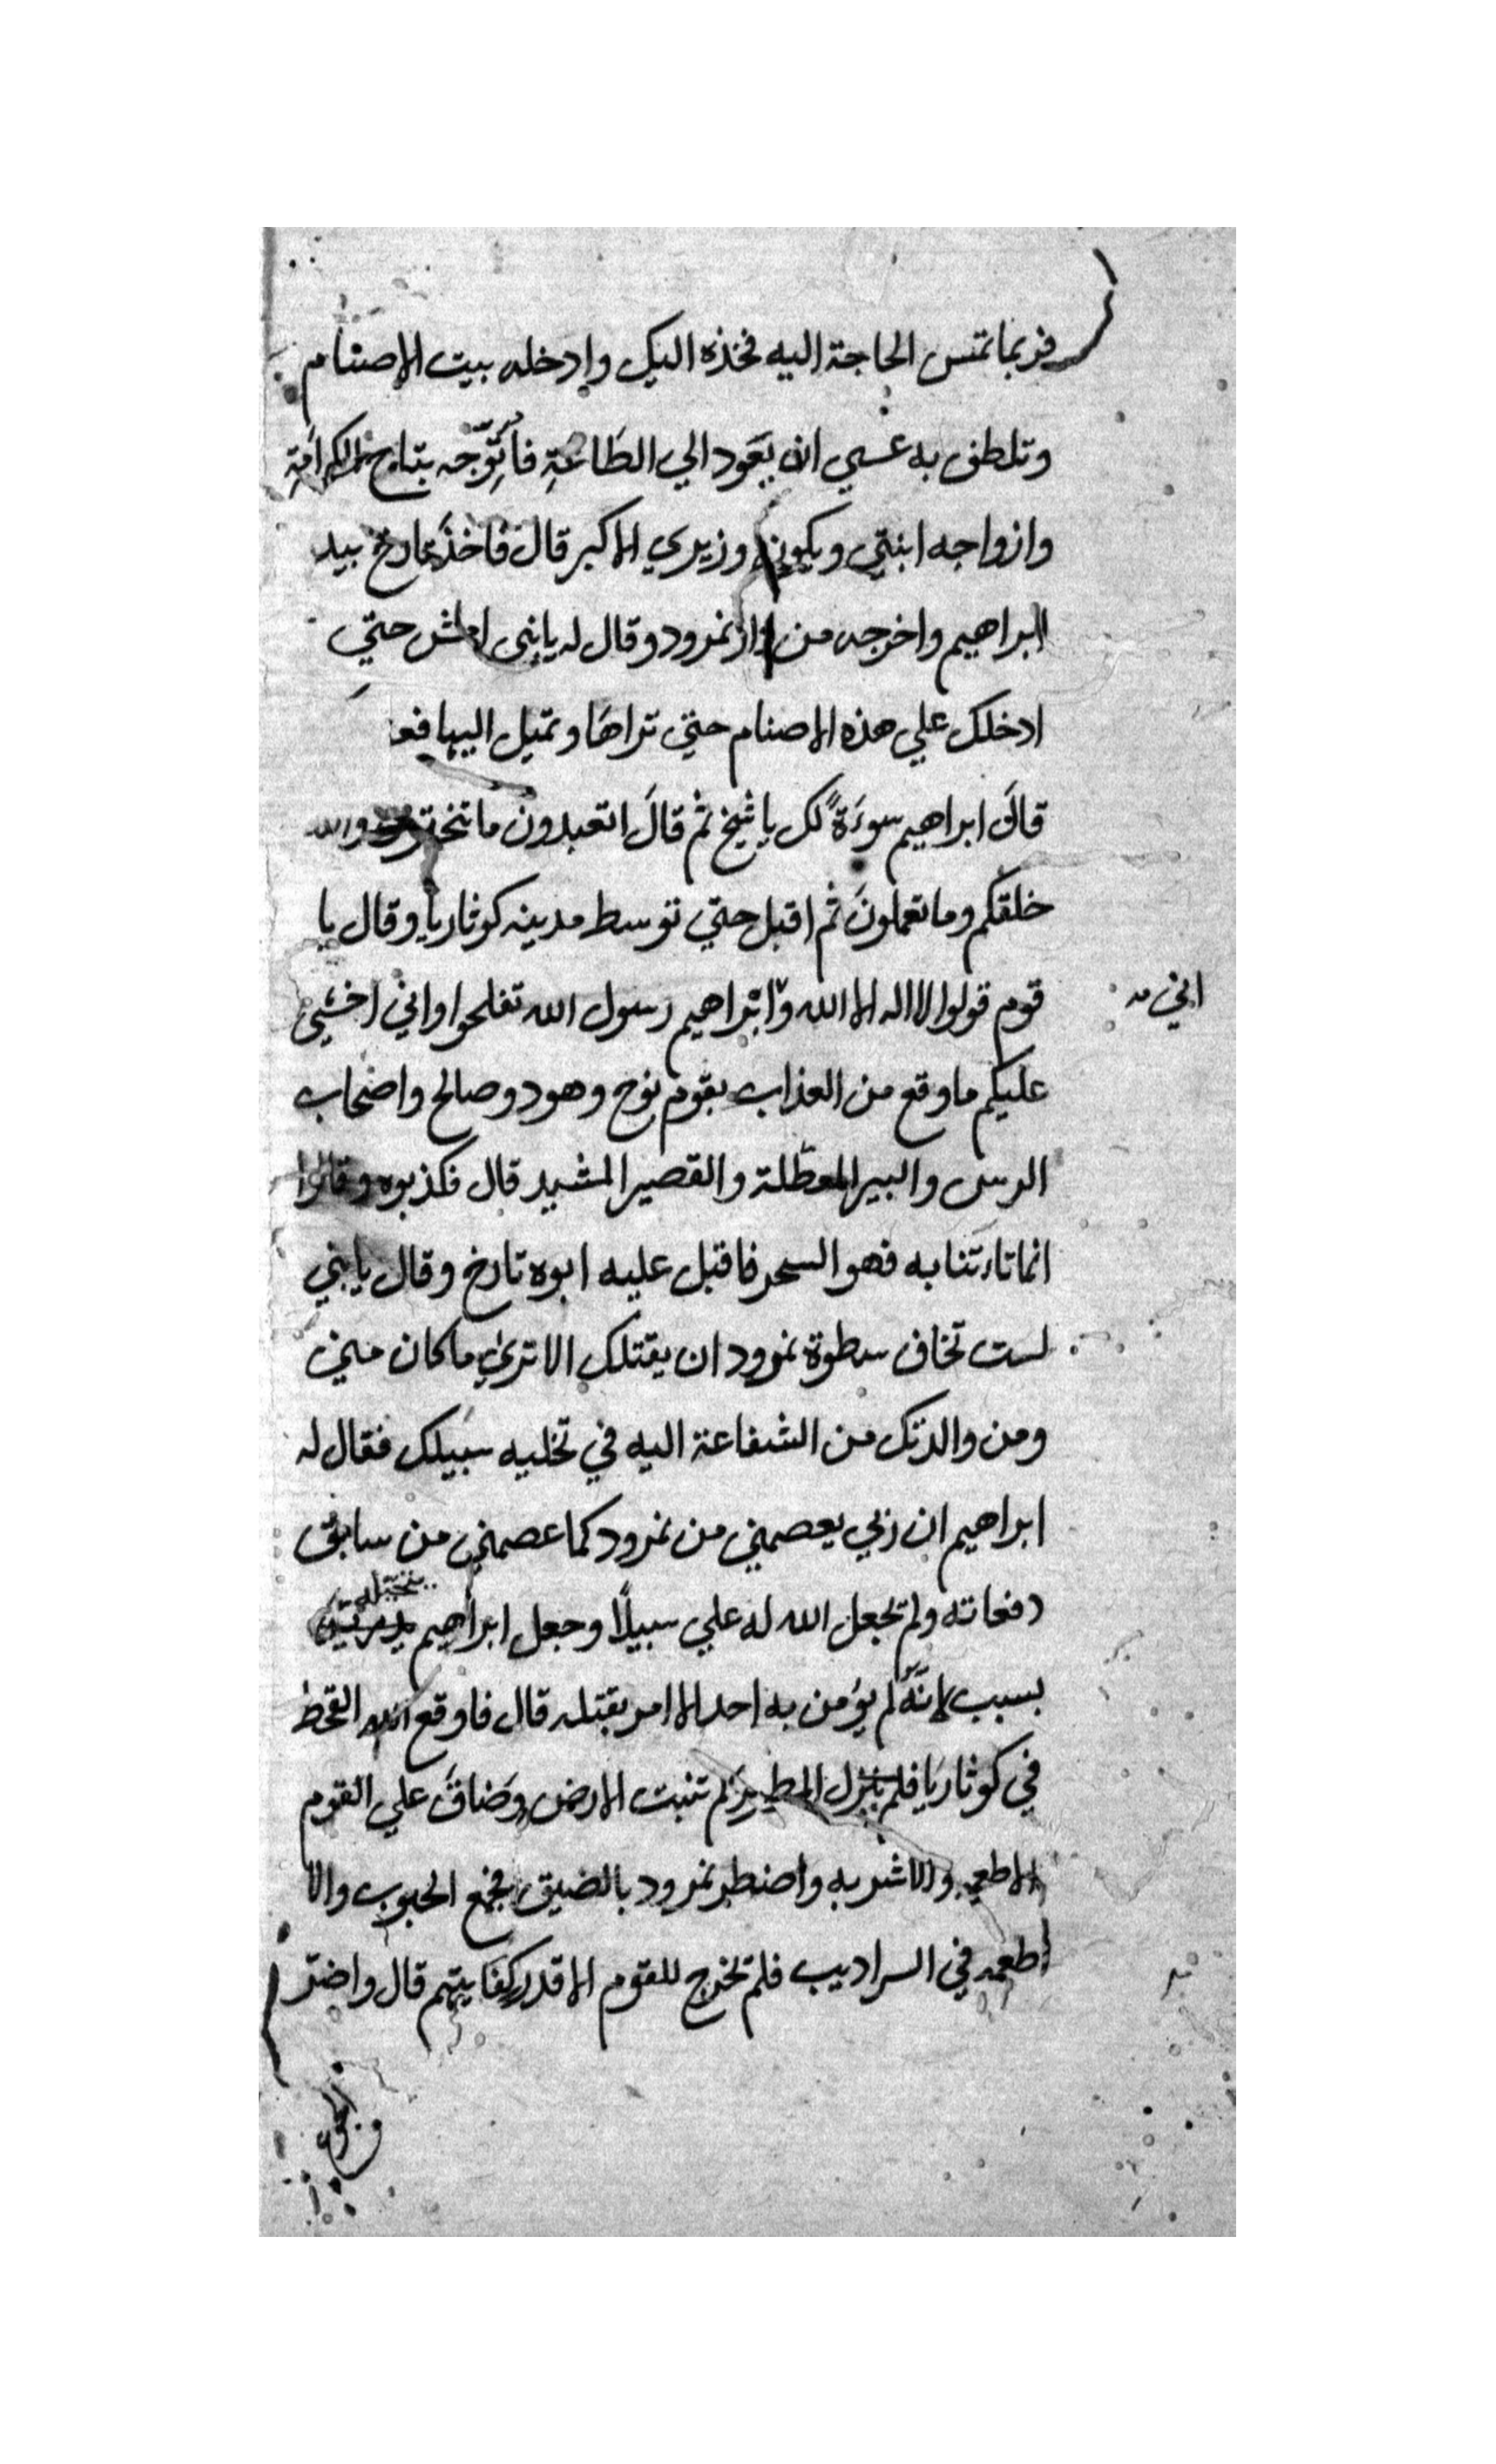 فربما تمس الحاجة اليه فخذه اليك وادخله بيت الاصنام
وتلطف به عسي ان يعود الي الطاعة فأتوجه بتاج الكرامة
وازواجه ابنتي ويكون وزيري الاكبر قال فاخذ تارخ بيد
ابراهيم واخرجه من دار نمرود وقال له يابني امش حتي
ادخلك علي هذه الاصنام حتي تراها وتميل اليها فعند
قال ابراهيم سوءة لك يا شيخ ثم قال اتعبدون ما تنحتون والله
خلقكم وما تعملون ثم اقبل حتي توسط مدينه كوثاريا وقال يا
قوم قولوا لا اله الا الله وابراهيم رسول الله تفلحوا واني اخشي
اني
عليكم ما وقع من العذاب بقوم نوح وهود وصالح واصحاب
الرس والبير المعطلة والقصير المشيد قال فكذبوه وقالوا
انما تاءتنا به فهو السحر فاقبل عليه ابوه تارخ وقال يا بني
لست تخاف سطوة نمرود ان يقتلك الا تري ما كان مني
ومن والدتك من الشفاعة اليه في تخليه سبيلك فقال له
ابراهيم ان ربي يعصمني من نمرود كما عصمني من سابق
دفعاته ولم تجعل الله له علي سبيلاً وجعل ابراهيم
بسبب لانه لم يؤمن به احد الا امر بقتله قال فاوقع الله القحط
في كوثاريا فلم ينزل المطر ولم تنبت الارض وضاق علي القوم
الاطعمه والاشربه واضطر نمرود بالضيق فجمع الحبوب والا
اطعمه في السراديب فلم تخرج للقوم الا قدر كفايتهم قال واضر